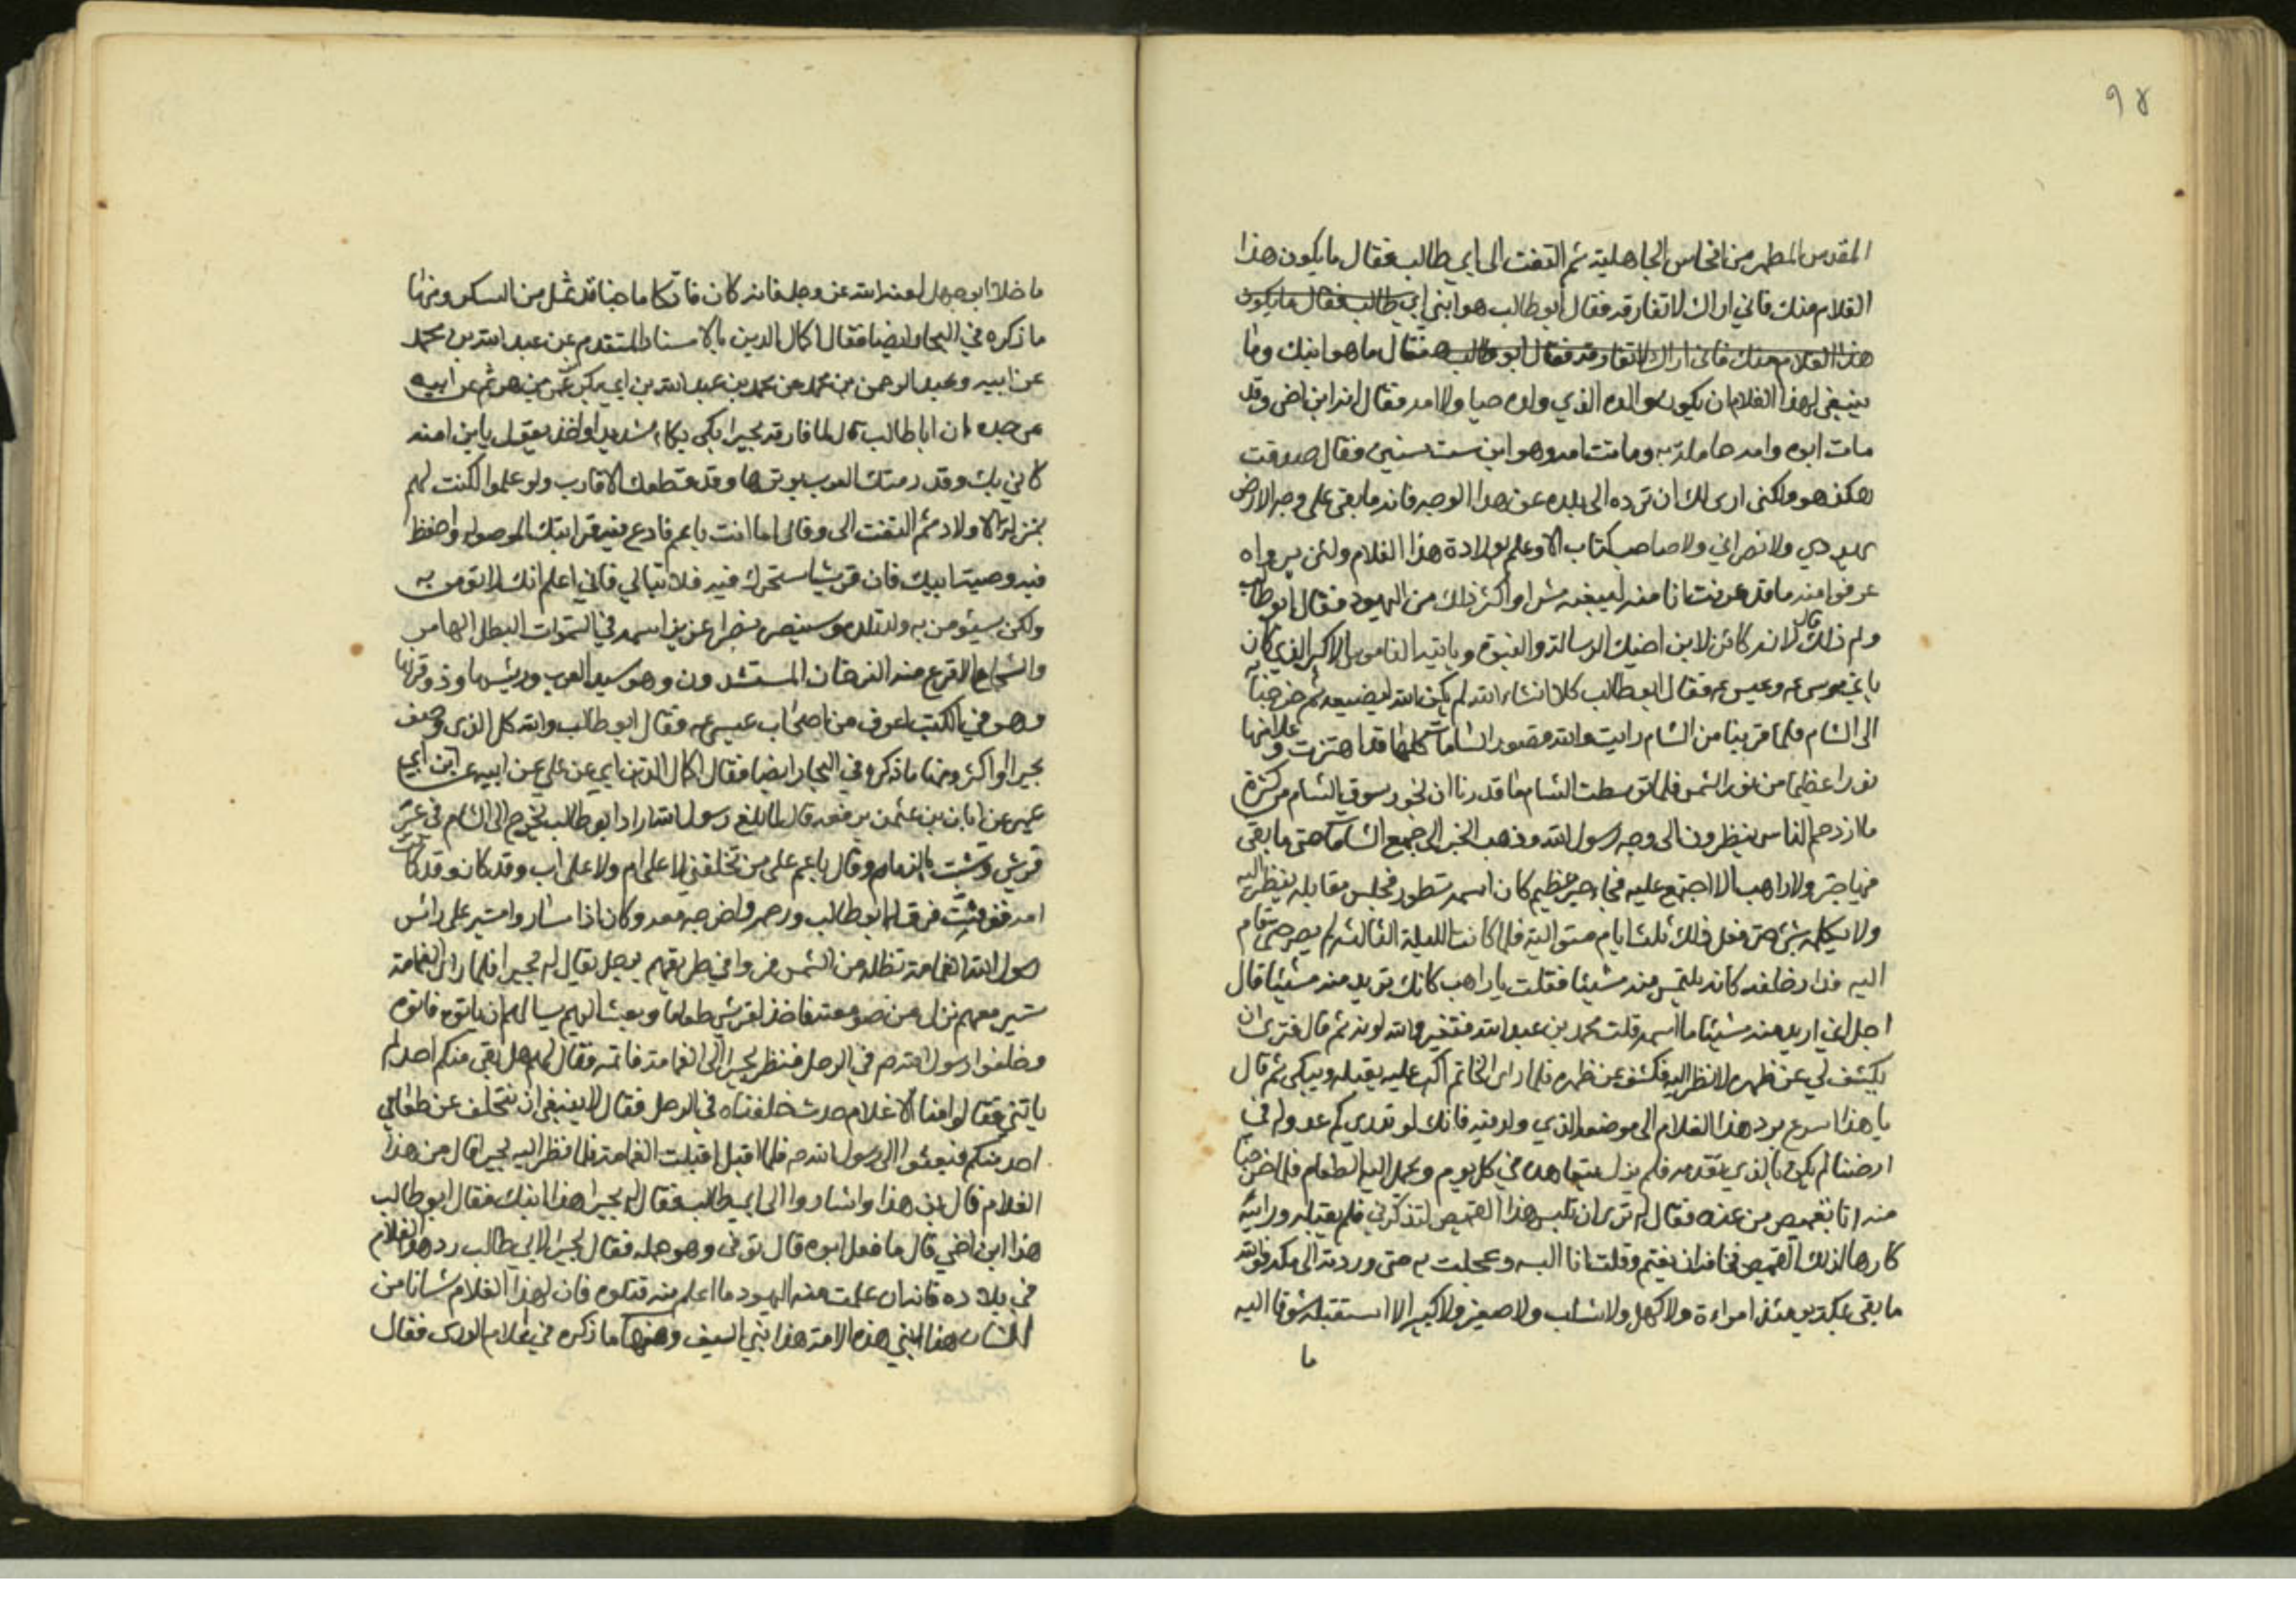 ٩٨
المقدس المطهر من انجاس الجاهلية ثم التفت الى ابي طالب فقال ما يكون هذا
الغلام منك فاني اراك لا تفارقه فقال ابو طالب هو ابني ابي طالب فقال ما يكون
هذا الغلام منك فاني اراك لا تفارقه فقال ابو طالب هو فقال ما هو ابنك وما
ينبغي لهذا الغلام ان يكون والده الذي ولده حيا ولا امه فقال انه ابن اخي وقد
مات ابوه وامه حاملة به وماتت امه وهو ابن ست سنين فقال صدقت
هكذا هو ولكني ارى لك ان ترده الى بلده عن هذا الوجه فانه ما بقي على وجه الارض
يهودي ولا نصراني ولا صاحب كتاب الا وعلم بولادة هذا الغلام ولئن راوه
عرفوا منه ما قد عرفت انا منه ليبغنه شرا واكثر ذلك من اليهود فقال ابو طالب
ولم ذلك قال لانه كائن لابن اخيك الرسالة والنبوة وياتيه الناموس الاكبر الذي كان
ياتي موسى ع وعيسى ع فقال ابو طالب كلا انشاء الله لم يكن الله ليضيعه ثم خرجنا به
الى الشام فلما قربنا من الشام رايت والله قصور الشامات كلها قد اهتزت وعلا منها
نورا عظيما من نور الشمس فلما توسطت الشام ما قدرنا ان نجوز سوق الشام من كثرة
ما ازدحم الناس ينظرون الى وجه رسول الله وذهب الخبر الى جميع الشامات حتى ما بقى
فيها حبر ولا راهب الا اجتمع عليه فجاء حبر عظيم كان اسمه نسطور فجلس مقابله ينظر اليه
ولا يكلمه بشئ حتى فعل ذلك ثلثة ايام متوالية فلما كانت الليلة الثالثة لم يصبر حتى قام
اليه فدار خلفه كانه يلتمس منه شيئا فقلت يا راهب كانك تريد منه شيئا قال
اجل اني اريد منه شيئا ما اسمه قلت محمد بن عبد الله فتغير والله لونه ثم قال فترى ان
يكشف لي عن ظهره لانظر اليه فكشف عن ظهره فلما راى الخاتم اكب عليه يقبله ويبكى ثم قال
يا هذا اسرع برد هذا الغلام الى موضعه الذي ولد فيه فانك لو تدري كم عدو له في
ارضنا لم يكن بالذي تقدمه فلم يزل يتعاهده في كل يوم ويحمل اليه الطعام فلما خرجنا
منها اتاه بقميص من عنده فقال لي ترى ان تلبس هذا القميص لتذكرني فلم يقبله ورايته
كارها لذلك القميص مخافة ان يغتم وقلت انا البسه وعجلت به حتى رددته الى مكة فوالله
ما بقى بمكة يومئذ امراءة ولا كهل ولا شاب ولا صغير ولا كبير الا استقبله شوقا اليه
ما
ما خلا ابو جهل لعنه الله عز وجل فانه كان فاتكا ماجنا قد ثمل من السكر ومنها
ما ذكره في البحار ايضا فقال اكمال الدين بالاسناد المتقدم عن عبد الله بن محمد
عن ابيه وعبد الرحمن بن محمد عن محمد بن عبد الله بن ابي بكر بن عمرو بن حزم عن ابيه
عن جده ان ابا طالب قال لما فارقه بحيرا بكى بكاء شديدا واخذ يقول يابن امنه
كاني بك وقد رمتك العرب بوترها وقد قطعك الاقارب ولو علموا لكنت لهم
بمنزلة الاولاد ثم التفت الى وقال اما انت يا عم فادع فيه قرابتك الموصولة واحفظ
فيه وصية ابيك فان قريشا ستهجرك فيه فلا تبالي فاني اعلم انك لا تومن به
ولكن سيؤمن به ولد تلده وسينصره نصرا عزيزا اسمه في السموات البطل الهاصر
والشجاع الاقرع منه الفرخان المستشهدون وهو سيد العرب ورئيسها وذو قرنيها
وهو في الكتب اعرف من اصحاب عيسى ع فقال ابو طالب والله كل الذي وصف
بحيرا واكثر ومنها ما ذكره في البحار ايضا فقال اكمال الدين ابي عن علي عن ابيه عن ابن ابي
عمير عن ابان بن عثمن يرفعه قال لما بلغ رسول الله اراد ابو طالب يخرج الى الشام في عير
قريش وتشبث بالزمام وقال يا عم على من تخلفني لا على ام ولا على اب وقد كان وقد كانت
امه توفيت فرق له ابو طالب ورحمه واخرجه معه وكان اذا ساروا تسير على راس
رسول الله الغمامة تظله من الشمس فمروا في طريقهم برجل يقال له بحيرا فلما راى الغمامة
تسير معهم نزل من صومعته فاخذ لقريش طعاما وبعث اليهم يسالهم ان ياتوه فاتوه
وخلفوا رسول الله ص في الرحل فنظر بحيرا الى الغمامة قائمة فقال لهم هل بقى منكم احد لم
ياتني فقالوا ما منا الا غلام حدث خلفناه في الرحل فقال لا ينبغي ان يتخلف عن طعامي
احد منكم فبعثوا الى رسول الله ص فلما اقبل اقبلت الغمامة فلما نظر اليه بحيرا قال من هذا
الغلام قال ابن هذا واشاروا الى ابي طالب فقال له بحيرا هذا ابنك فقال ابو طالب
هذا ابن اخي قال ما فعل ابوه قال توفي وهو حمل فقال بحيرا لابي طالب رد هذا الغلام
في بلاده فانه ان علمت منه اليهود ما اعلم منه قتلوه فان لهذا الغلام شانا من
الشان هذا نبي هذه الامة هذا نبي السيف ومنها ما ذكره في اعلام الورى فقال